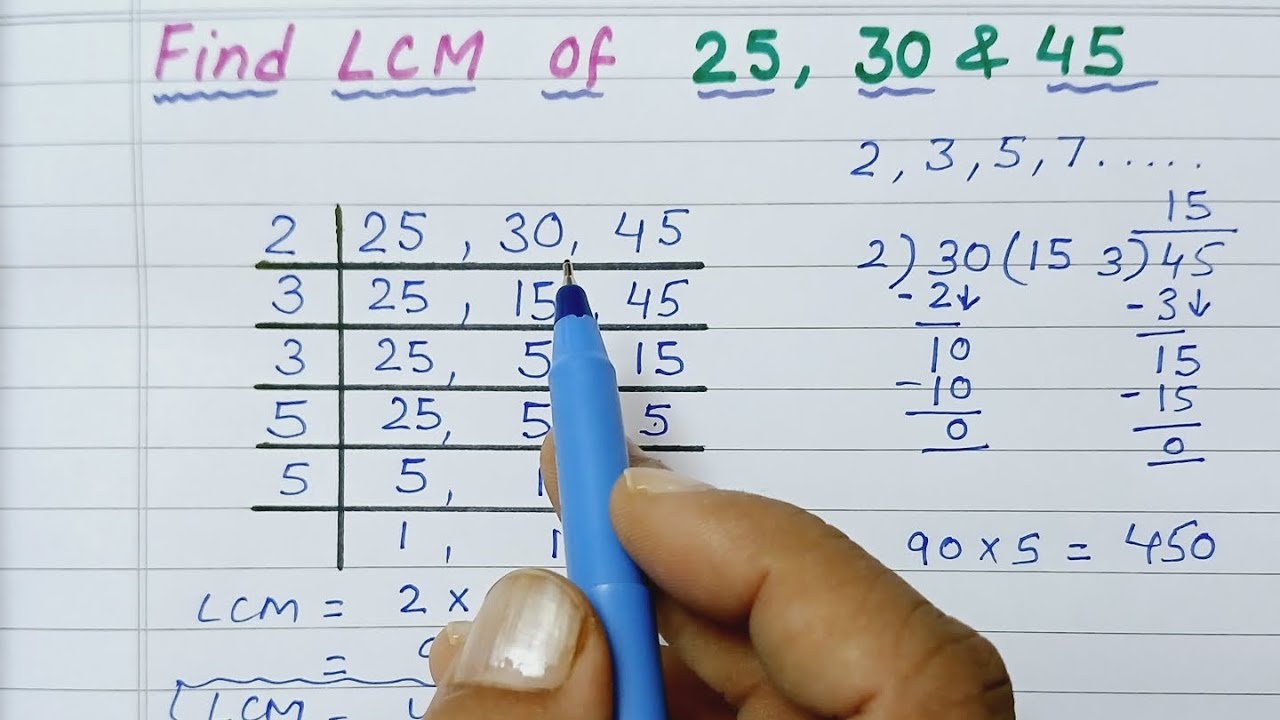 Find LCM of 25, 30 & 45
2, 3, 5, 7.....
2 | 25, 30, 45
3 | 25, 15, 45
3 | 25, 5 15
5 | 25, 5 5
5 | 5, 1
1, 1
LCM = 2 ×
=
LCM =
15
2) 30 (15 3) 45
- 2↓ - 3↓
10 15
- 10 - 15
0 0
90 × 5 = 450